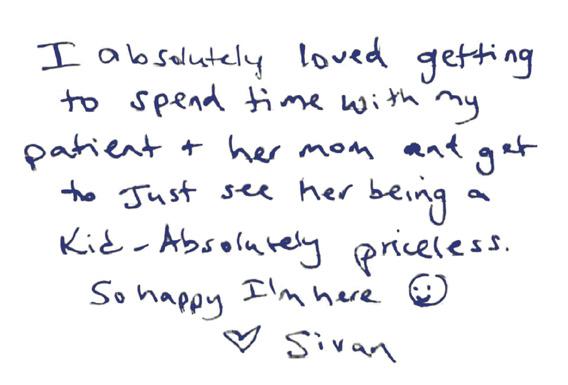 I absolutely loved getting
to spend time with my
patient + her mom and get
to Just see her being a
Kid - Absolutely priceless.
So happy I'm here ☺
♡ Sivan